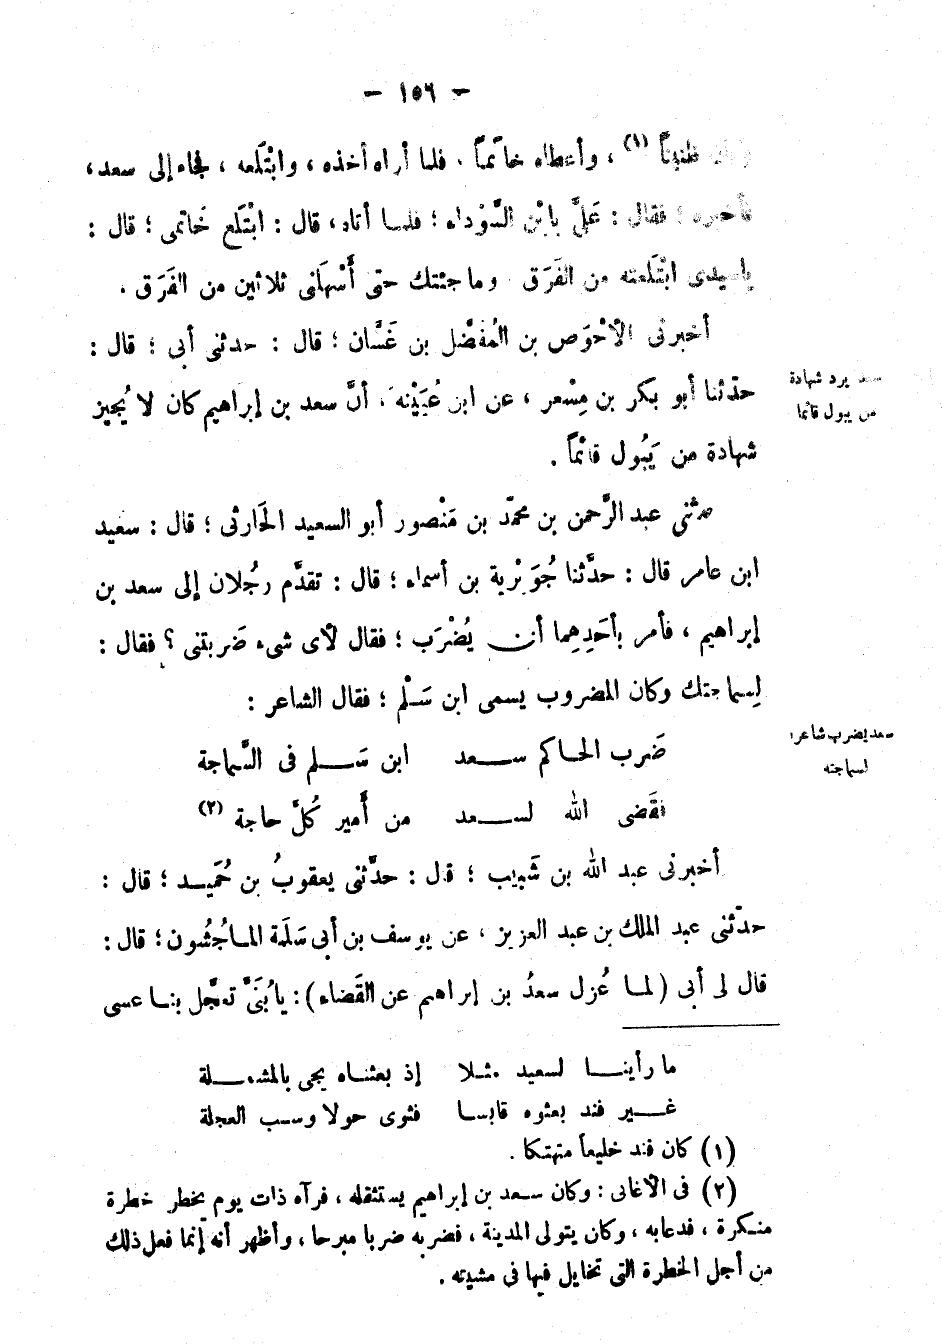 — ١٥٦ —
ظنيناً (١) ، وأعطاه خاتَماً . فلما أراه أخذه ، وابْتَلَعه ، فجاء إلى سعد ،
فأخبره ؛ فقال : عَلَىَّ بابْن السَّوْداء ؛ فلمــا أتاه ، قال : ابْتَلَع خَاتمى ؛ قال :
ياسيدى ابْتَلَعته من الفَرَق . وما جئتك حتى أَسْهَلَنى ثلاثين من الفَرَق .
أخبرنى الأَحْوَص بن المُفَضَّل بن غَسَّان ؛ قال : حدثنى أبى ؛ قال :
حدّثنا أبو بكر بن مِسْعر ، عن ابن عُيَيْنه ، أنَّ سعد بن إبراهيم كان لا يُجيز
سعد يرد شهادة
من يبول قائما
شهادة من يَبُول قائماً .
حدثنى عبد الرَّحمن بن محمّد بن مَنْصور أبو السعيد الحَارثى ؛ قال : سعيد
ابن عامر قال : حدَّثنا جُوَيْرية بن أسماء ؛ قال : تقدَّم رجُلان إلى سعد بن
إبراهيم ، فأمر بأحَدِهِما أن يُضْرَب ؛ فقال لأى شىء ضَربتنى ؟ فقال :
لِسماجتك وكان المضروب يسمى ابن سَـلْم ؛ فقال الشاعر :
سعد يضرب شاعرا
لسماجته
ضَرب الحـاكم ســـعد ابن سَـــلم فى السَّماجة
فقَضى الله لســـعد من أَمير كُلَّ حاجة (٢)
أخبرنى عبد الله بن شَبيب ؛ قال : حدَّثنى يعقوبُ بن حُمَيـد ؛ قال :
حدّثنى عبد الملك بن عبد العزيز ، عن يوسف بن أبى سَلَمة المـاجُشُون ؛ قال :
قال لى أبى ( لمـا عُزل سعدُ بن إبراهيم عن القَضاء ) : يابُنَىَّ تعجَّل بنـا عسى
ما رأينـــا لسعيد مثـلا إذ بعثنـاه يجى بالمشمـــلة
غـــير فند بعثوه قابسـا فثوى حولا وسـب العجلة
(١) كان فند خليعاً متهتكا .
(٢) فى الأغانى : وكان سـعد بن إبراهيم يستثقله ، فرآه ذات يوم يخطر خطرة
منـكرة ، فدعابه ، وكان يتولى المدينة ، فضربه ضربا مبرحا ، وأظهر أنه إنما فعل ذلك
من أجل الخطرة التى تخايل فيها فى مشيته .